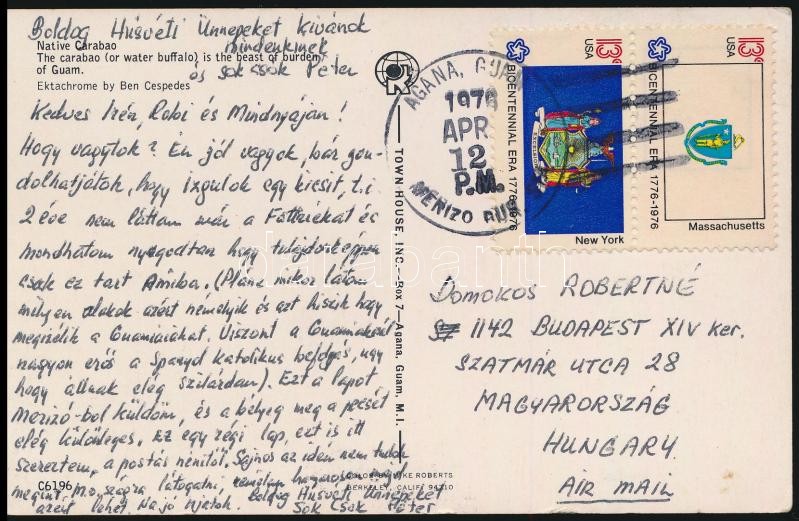 Boldog Húsvéti Ünnepeket Kívánok
mindenkinek
és sok csók Péter
Native Carabao
The carabao (or water buffalo) is the beast of burden
of Guam.
Ektachrome by Ben Cespedes
Kedves Irén, Robi és Mindnyájan!
Hogy vagytok? Én jól vagyok, bár gon-
dolhatjátok, hogy izgulok egy kicsit, t.i.
2 éve nem láttam már a
mondhatom nyugodtan hogy tulajdonképpen
csak ez tart
milyen alakok azért némelyik és azt hiszik hogy
megtérítik a Guamiakat. Viszont a Guamiaknál
nagyon erős a Spanyol katolikus befolyás, úgy
hogy állnak elég szilárdan). Ezt a lapot
Merizó-ból küldöm, és a bélyeg meg a pecsét
elég különleges. Ez egy régi lap, ezt is itt
szereztem, a postás nénitől. Sajnos az idén nem tudok
megint m.o.szágra látogatni,
azért lehet. Na jó írjatok. Boldog Húsvéti Ünnepeket
Sok Csók Péter
C6196
COLOR BY MIKE ROBERTS
BERKELEY, CALIF. 94710
TOWN HOUSE, INC.—Box 7—Agana, Guam, M.I.
AGANA, GUAM
1976
APR
12
P.M.
MERIZO RUR
13c
USA
BICENTENNIAL ERA 1776-1976
New York
13c
USA
BICENTENNIAL ERA 1776-1976
Massachusetts
Domokos ROBERTNÉ
1142 BUDAPEST XIV Ker.
SZATMÁR UTCA 28
MAGYARORSZÁG
HUNGARY
AIR MAIL
darabanth